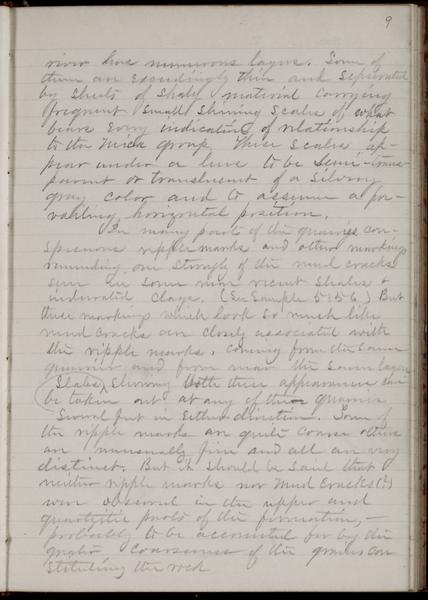 9
river has numerous layers. Some of
them are exceedingly thin and separated
by sheets of shaly material carrying
frequent small shining scales of what
bears every indication of relationship
to the mica group, these scales ap-
pear under a lens to be semi-trans-
parent or translucent of a silvery
gray color and to assume a pre-
vailing, horizontal position.
In many parts of the quarries con-
spicuous ripple marks and other markings
reminding one strongly of the mud cracks
seen in some more recent shales &
indurated clays. (See Sample 5156.) But
these markings which look so much like
mud cracks are closely associated with
the ripple marks, coming from the same
quarries and from near the same layers
Slabs showing both these appearances can
be taken out at any of the quarries
Several feet in either direction. Some of
the ripple marks are quite coarse others
are unusually fine and all are very
distinct. But it should be said that
neither ripple marks nor mud cracks (?)
were observed in the upper and
quartzitic parts of the formation, –
probably to be accounted for by the
greater coarseness of the grains con
stituting the rock